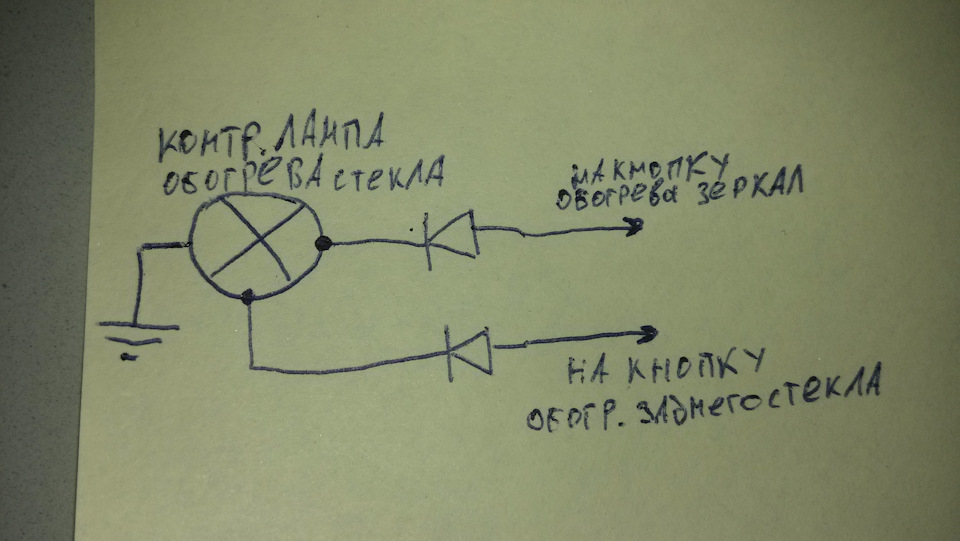 КОНТР. ЛАМПА
ОБОГРЕВА СТЕКЛА
НА КНОПКУ
ОБОГРЕВА ЗЕРКАЛ
НА КНОПКУ
ОБОГР. ЗАДНЕГО СТЕКЛА